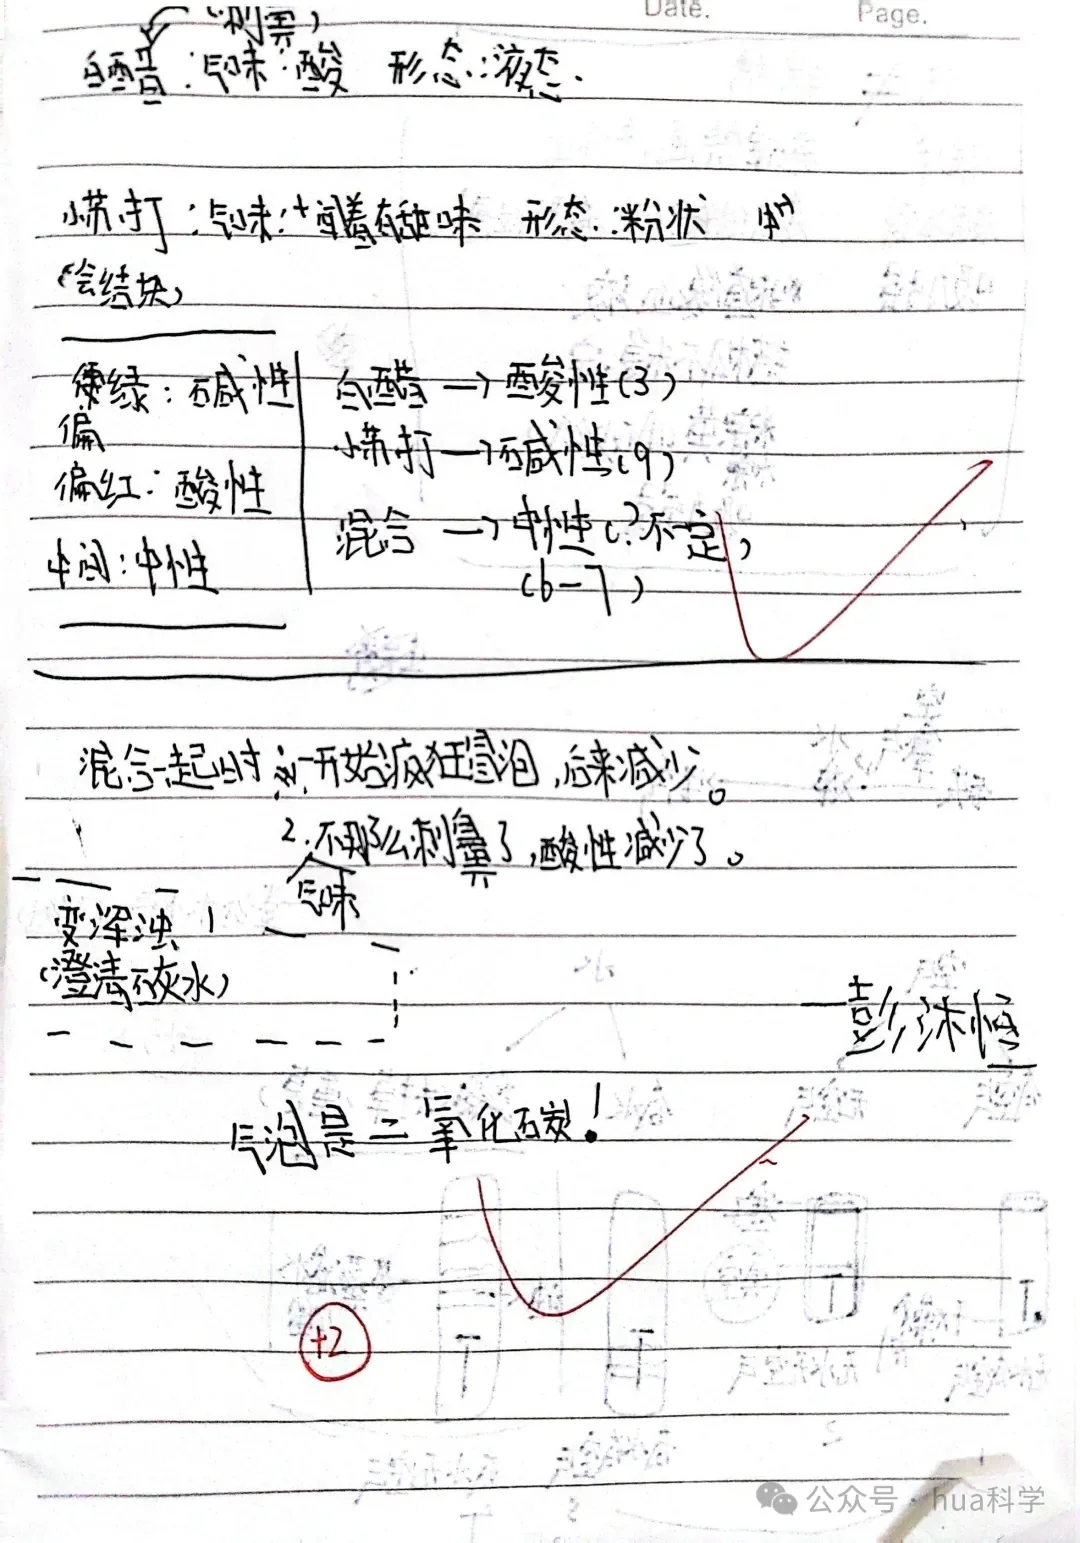 Date. Page.
(刺鼻)
白醋:气味:酸 形态:液态.
小苏打:气味:闻着有甜味 形态:粉状
(会结块)
偏绿:碱性
偏红:酸性
中间:中性
白醋→酸性(3)
小苏打→碱性(9)
混合→中性(?不一定)
(6-7)
混合一起时:1.一开始疯狂冒泡,后来减少。
2.不那么刺鼻了,酸性减少了。
气味
变浑浊!
(澄清石灰水)
—彭沐恒
气泡是二氧化石炭!
+2
公众号·hua科学